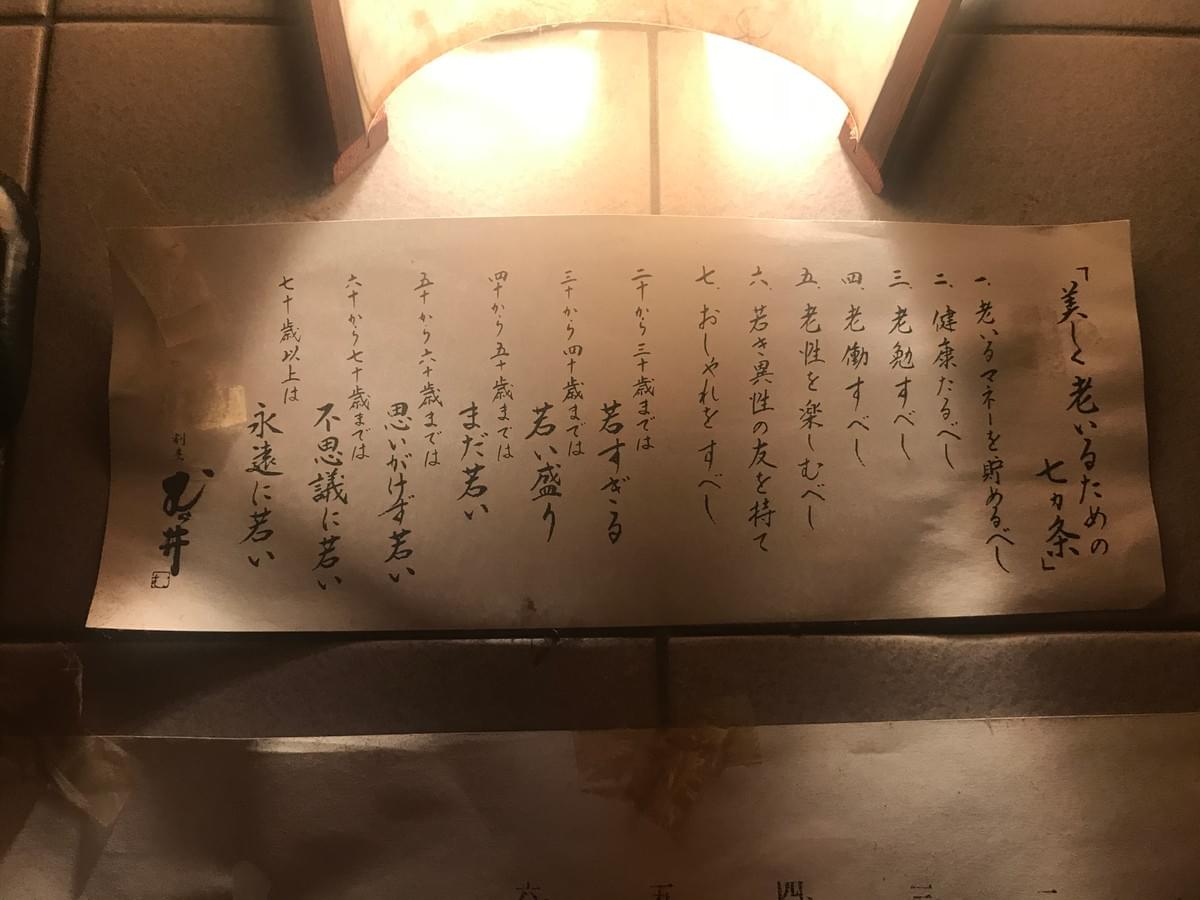 「美しく老いるための
七カ条」
一、老いるマネーを貯めるべし
二、健康たるべし
三、老勉すべし
四、老働すべし
五、老性を楽しむべし
六、若き異性の友を持て
七、おしゃれをすべし
二十から三十歳までは
若すぎる
三十から四十歳までは
若い盛り
四十から五十歳までは
まだ若い
五十から六十歳までは
思いがけず若い
六十から七十歳までは
不思議に若い
七十歳以上は
永遠に若い
割烹
むら井
二
三
四、
五
六、